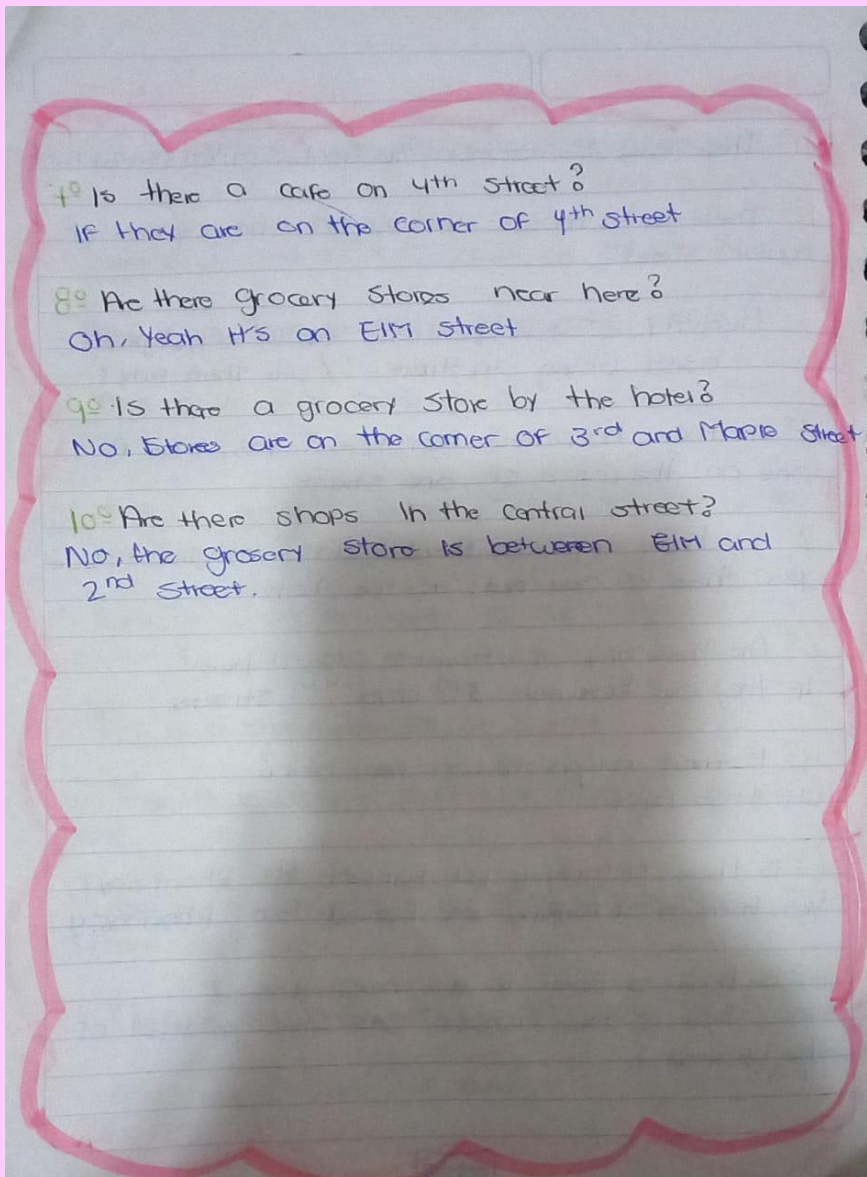 7º Is there a cafe on 4th street?
If they are on the corner of 4th street
8º Are there grocery stores near here?
Oh, Yeah It's on Elm street
9º Is there a grocery store by the hotel?
No, Stores are on the corner of 3rd and Maple Street
10º Are there shops In the central street?
No, the grosery store is betweren Elm and
2nd Street.